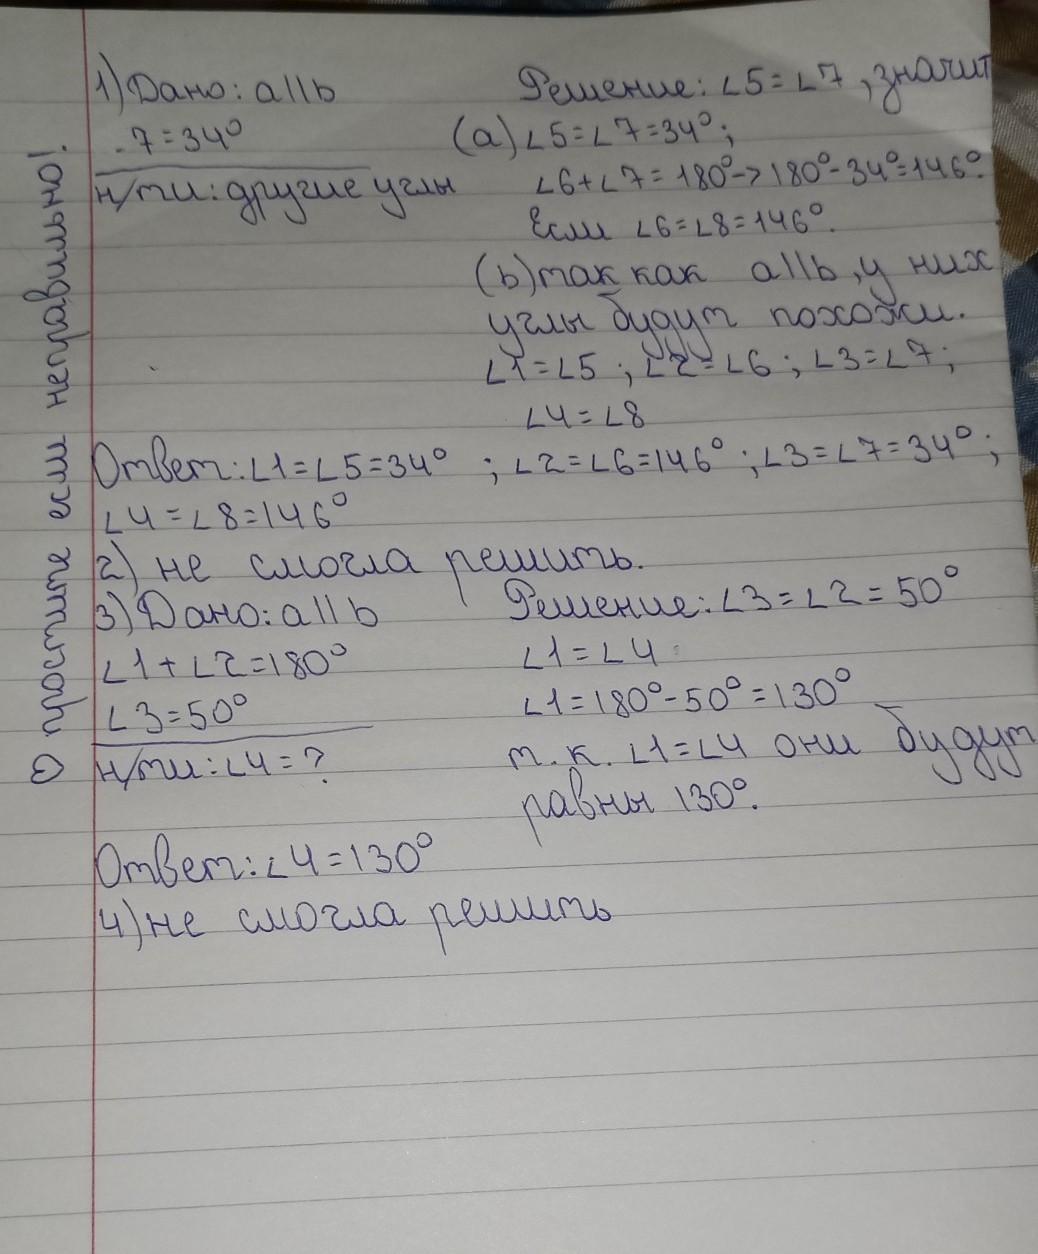 1) Дано: a||b
. 7 = 34°
н/ти: другие углы
Решение: ∠5 = ∠7, значит
(a) ∠5 = ∠7 = 34°;
∠6 + ∠7 = 180° -> 180° - 34° = 146°.
Если ∠6 = ∠8 = 146°.
(b) так как a||b, у них
углы будут похожи.
∠1 = ∠5 ; ∠2 = ∠6 ; ∠3 = ∠7;
∠4 = ∠8
Ответ: ∠1 = ∠5 = 34° ; ∠2 = ∠6 = 146° ; ∠3 = ∠7 = 34° ;
∠4 = ∠8 = 146°
2) не смогла решить.
3) Дано: a||b
∠1 + ∠2 = 180°
∠3 = 50°
н/ти: ∠4 = ?
Решение: ∠3 = ∠2 = 50°
∠1 = ∠4
∠1 = 180° - 50° = 130°
т.к. ∠1 = ∠4 они будут
равны 130°.
Ответ: ∠4 = 130°
4) не смогла решить
О простите если неправильно!